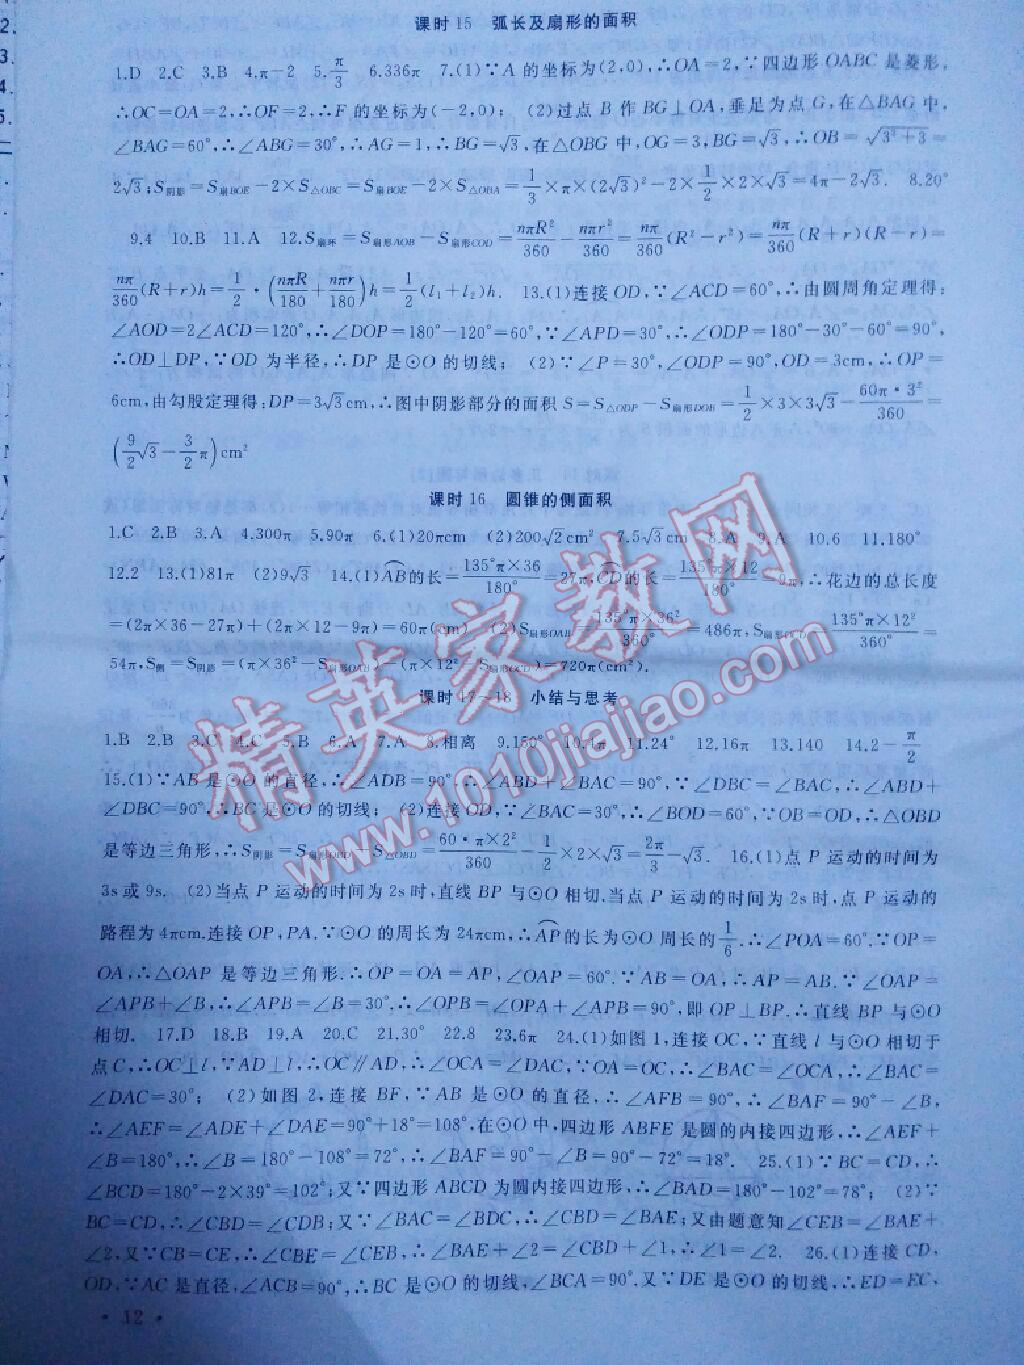 课时15 弧长及扇形的面积
1.D 2.C 3.B 4.π-2 5.π/3 6.336π 7.(1)∵A 的坐标为(2,0),∴OA=2,∵四边形 OABC 是菱形,
∴OC=OA=2,∴OF=2,∴F 的坐标为(-2,0); (2)过点 B 作 BG⊥OA,垂足为点 G,在△BAG 中,
∠BAG=60°,∴∠ABG=30°,∴AG=1,∴BG=√3,在△OBG 中,OG=3,BG=√3,∴OB=√(3²+3)=
2√3;S阴影=S扇BOE-2×S△OBC=S扇BOE-2×S△OBA=1/3×π×(2√3)²-2×1/2×2×√3=4π-2√3. 8.20°
9.4 10.B 11.A 12.S扇环=S扇形AOB-S扇形COD=nπR²/360-nπr²/360=nπ/360(R²-r²)=nπ/360(R+r)(R-r)=
nπ/360(R+r)h=1/2·(nπR/180+nπr/180)h=1/2(l₁+l₂)h. 13.(1)连接 OD,∵∠ACD=60°,∴由圆周角定理得:
∠AOD=2∠ACD=120°,∴∠DOP=180°-120°=60°,∵∠APD=30°,∴∠ODP=180°-30°-60°=90°,
∴OD⊥DP,∵OD 为半径,∴DP 是⊙O 的切线; (2)∵∠P=30°,∠ODP=90°,OD=3cm,∴OP=
6cm,由勾股定理得:DP=3√3cm,∴图中阴影部分的面积 S=S△ODP-S扇形DOB=1/2×3×3√3-60π·3²/360=
(9/2√3-3/2π)cm²
课时16 圆锥的侧面积
1.C 2.B 3.A 4.300π 5.90π 6.(1)20πcm (2)200√2cm² 7.5√3cm 8.A 9.A 10.6 11.180°
12.2 13.(1)81π (2)9√3 14.(1)AB的长=135°π×36/180°=27π,CD的长=135°π×12/180°=9π,∴花边的总长度
=(2π×36-27π)+(2π×12-9π)=60π(cm) (2)S扇形OAB=135°π×36²/360°=486π,S扇形OCD=135°π×12²/360°=
54π,S侧=S阴影=(π×36²-S扇形OAB)-(π×12²-S扇形OCD)=720π(cm²).
课时17~18 小结与思考
1.B 2.B 3.C 4.C 5.B 6.A 7.A 8.相离 9.150° 10.4π 11.24° 12.16π 13.140 14.2-π/2
15.(1)∵AB 是⊙O 的直径,∴∠ADB=90°,∴∠ABD+∠BAC=90°,∵∠DBC=∠BAC,∴∠ABD+
∠DBC=90°,∴BC 是⊙O 的切线; (2)连接 OD,∵∠BAC=30°,∴∠BOD=60°,∵OB=OD,∴△OBD
是等边三角形,∴S阴影=S扇形OBD-S△OBD=60·π×2²/360-1/2×2×√3=2π/3-√3. 16.(1)点 P 运动的时间为
3s或 9s. (2)当点 P 运动的时间为 2s时,直线 BP 与⊙O 相切.当点 P 运动的时间为 2s 时,点 P 运动的
路程为 4πcm,连接 OP,PA.∵⊙O 的周长为 24πcm,∴AP的长为⊙O 周长的1/6.∴∠POA=60°.∵OP=
OA,∴△OAP 是等边三角形.∴OP=OA=AP,∠OAP=60°.∵AB=OA,∴AP=AB.∵∠OAP=
∠APB+∠B,∴∠APB=∠B=30°,∴∠OPB=∠OPA+∠APB=90°,即 OP⊥BP.∴直线 BP 与⊙O
相切. 17.D 18.B 19.A 20.C 21.30° 22.8 23.6π 24.(1)如图 1,连接 OC,∵直线 l 与⊙O 相切于
点 C,∴OC⊥l,∵AD⊥l,∴OC∥AD,∴∠OCA=∠DAC,∵OA=OC,∴∠BAC=∠OCA,∴∠BAC=
∠DAC=30°; (2)如图 2,连接 BF,∵AB 是⊙O 的直径,∴∠AFB=90°,∴∠BAF=90°-∠B,
∴∠AEF=∠ADE+∠DAE=90°+18°=108°,在⊙O中,四边形 ABFE 是圆的内接四边形,∴∠AEF+
∠B=180°,∴∠B=180°-108°=72°,∴∠BAF=90°-∠B=90°-72°=18°. 25.(1)∵BC=CD,∴
∠BCD=180°-2×39°=102°;又∵四边形 ABCD 为圆内接四边形,∴∠BAD=180°-102°=78°; (2)∵
BC=CD,∴∠CBD=∠CDB;又∵∠BAC=∠BDC,∴∠CBD=∠BAE;又由题意知∠CEB=∠BAE+
∠2,又∵CB=CE,∴∠CBE=∠CEB,∴∠BAE+∠2=∠CBD+∠1,∴∠1=∠2. 26.(1)连接 CD,
OD,∵AC 是直径,∠ACB=90°,∴BC 是⊙O 的切线,∠BCA=90°.又∵DE 是⊙O 的切线,∴ED=EC,
· 12 ·
精英家教网
www.1010jiajiao.com